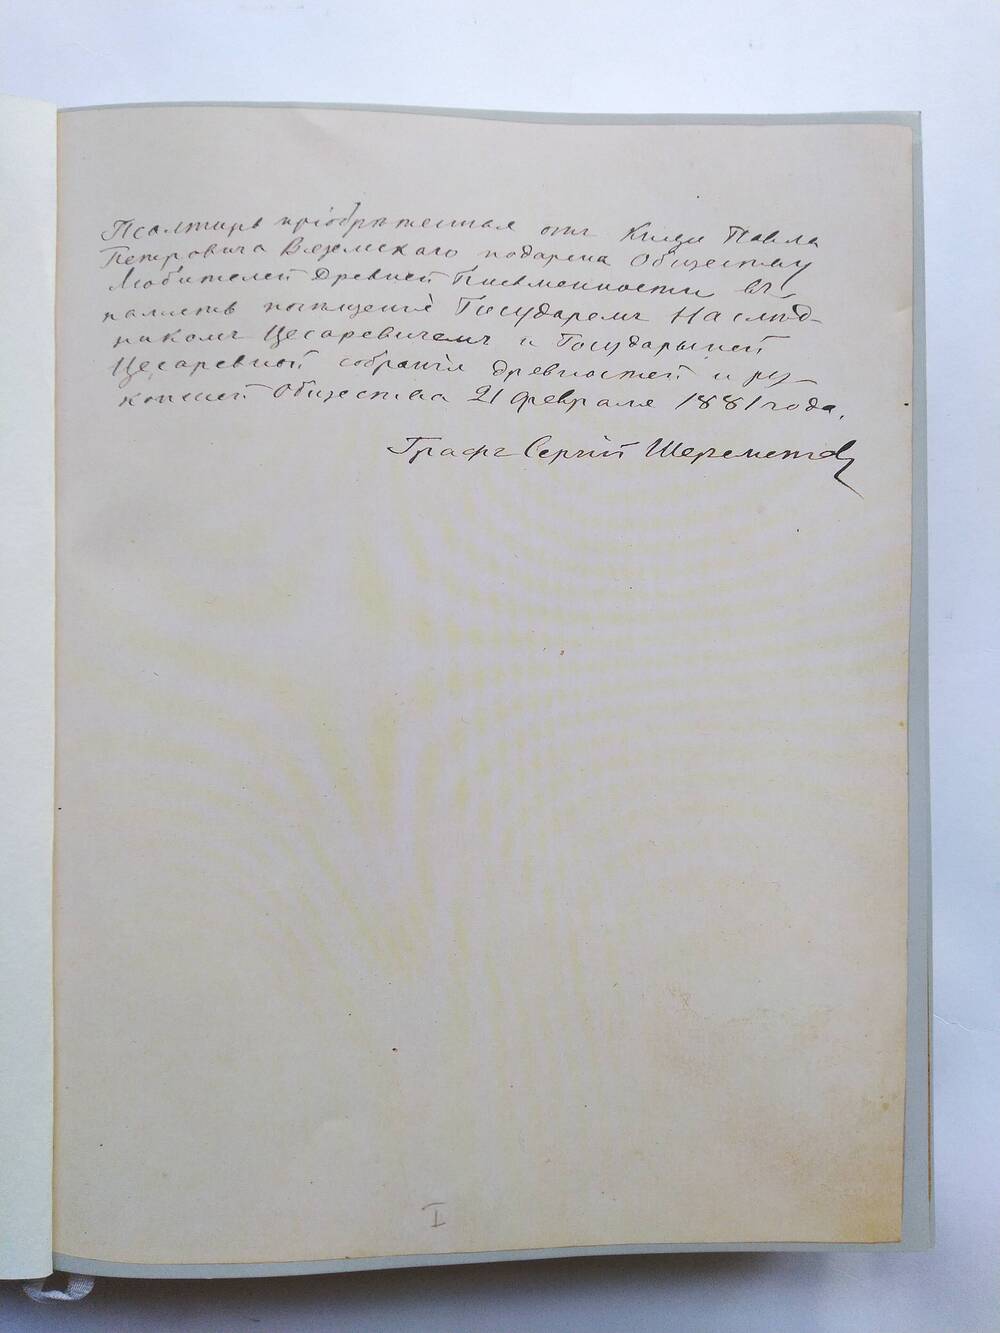 Псалтирь пріобрѣтенная отъ Князя Павла
Петровича Вяземскаго подарена Обществу
Любителей Древней Письменности въ
память посѣщенія Государемъ Наслѣд-
никомъ Цесаревичемъ и Государыней
Цесаревной собранія древностей и ру-
кописей Общества 21 февраля 1881 года.
Графъ Сергій Шереметевъ
I